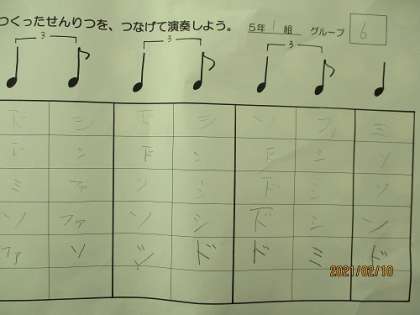 つくったせんりつを、つなげて演奏しよう。 5年 1 組 グループ 6
3 3 3
ド シ ド シ ソ ファ ミ
ド シ ド シ ド シ ソ
ミ ファ ソ シ ド シ ソ
ソ ファ ソ シ ド シ ソ
ファ ソ シ ド ド ミ ド
2021/02/10